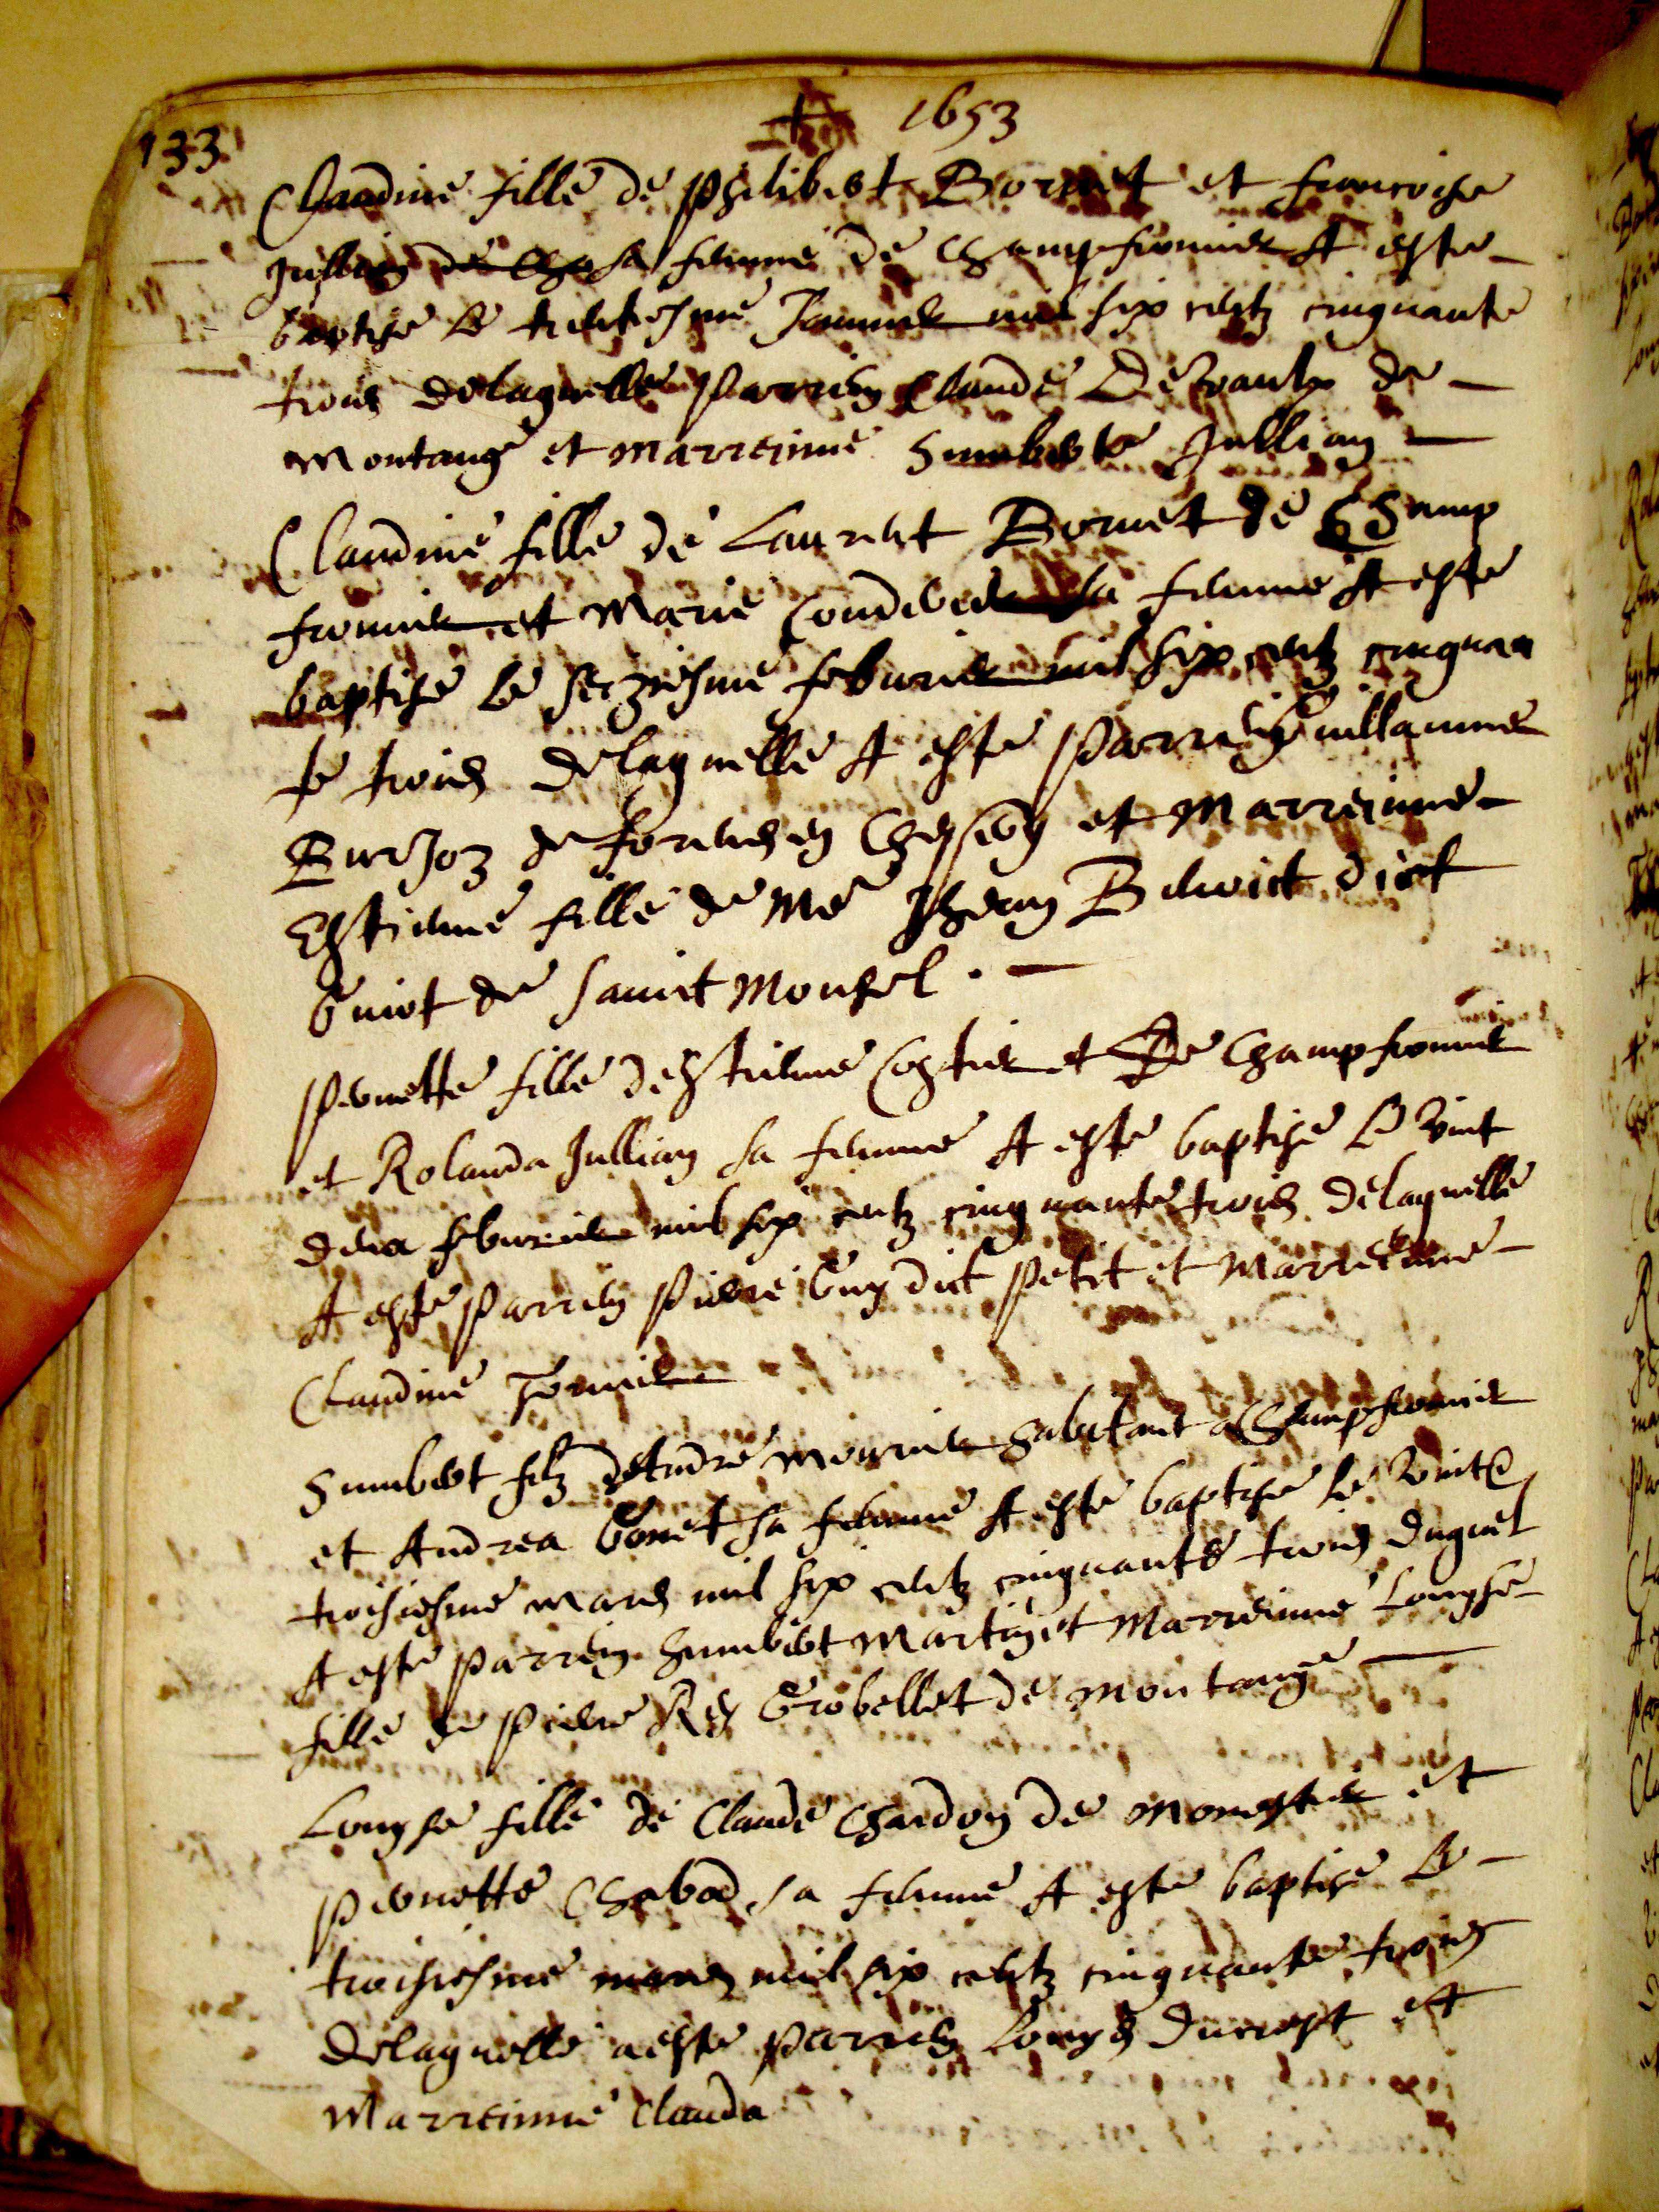 133
+ 1653
Claudine fille de Philibert Bornet et francoise
Jullian de Cha sa femme de Champfromier A este
baptise le trentiesme Januier mil six centz cinquante
trois delaquelle Parrien Claude Devaulx de
montange et marreinne humberte Jullian
Claudine fille de Laurent Bornet de Champ
fromier et Marie Coudurier sa femme A este
baptise le seiziesme feburier mil six centz cinquan
te trois delaquelle A este Parrien Guillaumme
Burjoz de forens en Chesery et Marreinne
Estienne fille de Me Jhean Benoict dict
Guiot de Sainct Monsel
Pernette fille destienne Costier et De Champfromier
et Rolanda Jullian sa femme A este baptise le vint
deux feburier mil six centz cinquante trois delaquelle
A este Parrien Pierre Guy dict Petit et Marreinne
Claudine Tornier
Humbert filz deAndre mournier habitant a Champfromier
et Andrea Gonet sa femme A este baptise le vint
troisiesme mars mil six centz cinquante trois duquel
A este Parrien humbert Martin et Marreinne Louyse
fille de Pierre Rey Grobellet de montange
Louyse fille de Claude Chardon de monestier et
Pernette Chabod sa femme A este baptise le
troisiesme mars mil six centz cinquante trois
Delaquelle a este Parrien Louys Ducrest et
Marreinne Clauda